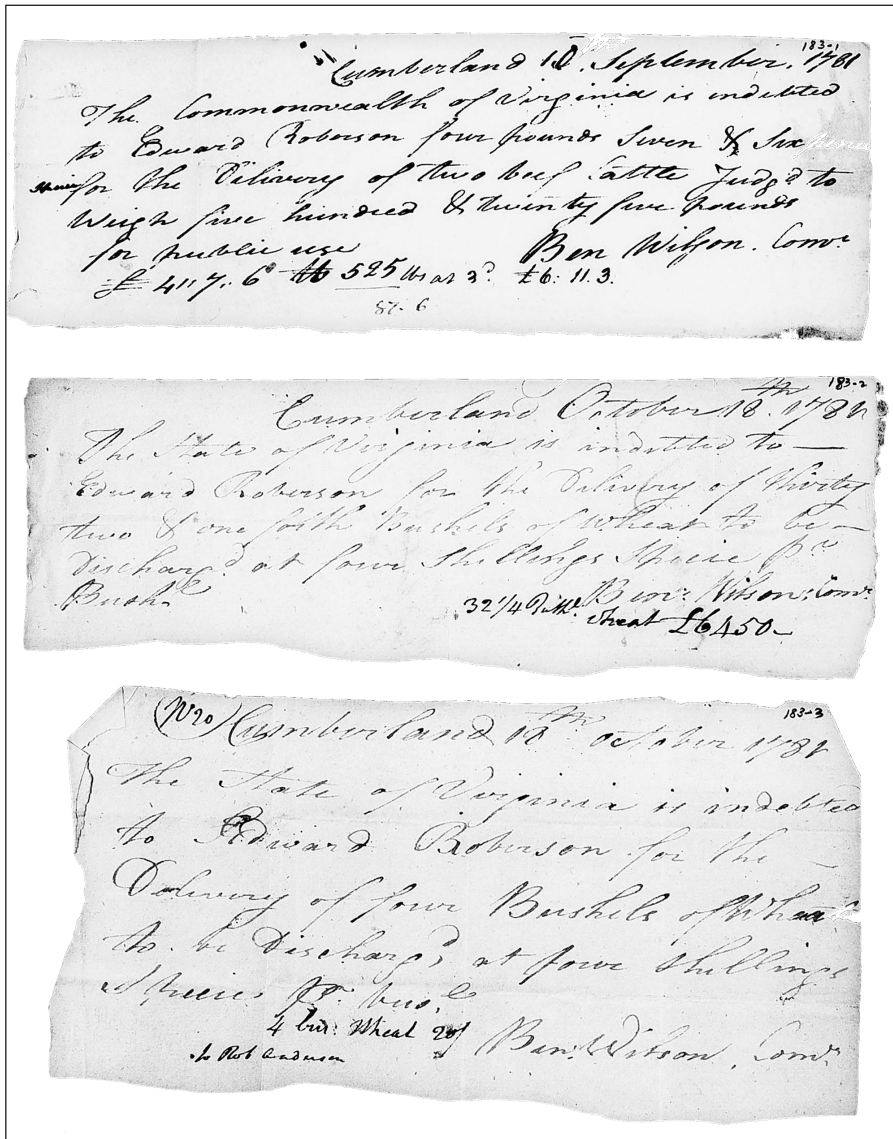 183-1
Cumberland 10. September. 1781
The Commonwealth of Virginia is indebted
to Edward Roberson four pounds Seven & Six pence
Specie for the Delivery of two beef Cattle Judgd to
Weigh five hundred & twenty five pounds
for public use Ben Wilson. Comr
£ 4"7,,6d 525 lbs at 3d. £6.11.3.
87-6
183-2
Cumberland October 18th 1781
The State of Virginia is indebted to
Edward Roberson for the Delivery of thirty
two & one forth Bushels of Wheat to be
Dischargd at four Shillings Specie pr
Bushl Ben: Wilson. Comr
32 1/4 Bushl Wheat £6450
183-3
(No 20) Cumberland 18th October 1781
The State of Virginia is indebted
to Edward Roberson for the
Delivery of four Bushels of Wheat
to be Dischargd at four Shillings
Specie Pr. bus.l
4 bus: Wheat Ben: Wilson. Comr
to Rob Anderson